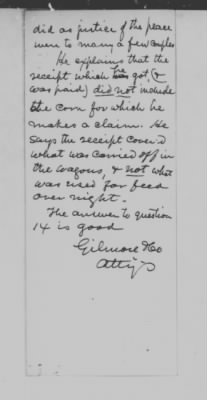 did as justice of the peace
were to marry a few couples
He explains that the
receipt which he got, (&
was paid) did not include
the corn for which he
makes a claim. He
says the receipt cover'd
what was carried off in
the wagons, & not what
was used for feed
over night.
The answer to question
14 is good
Gilmore & Co
Attys